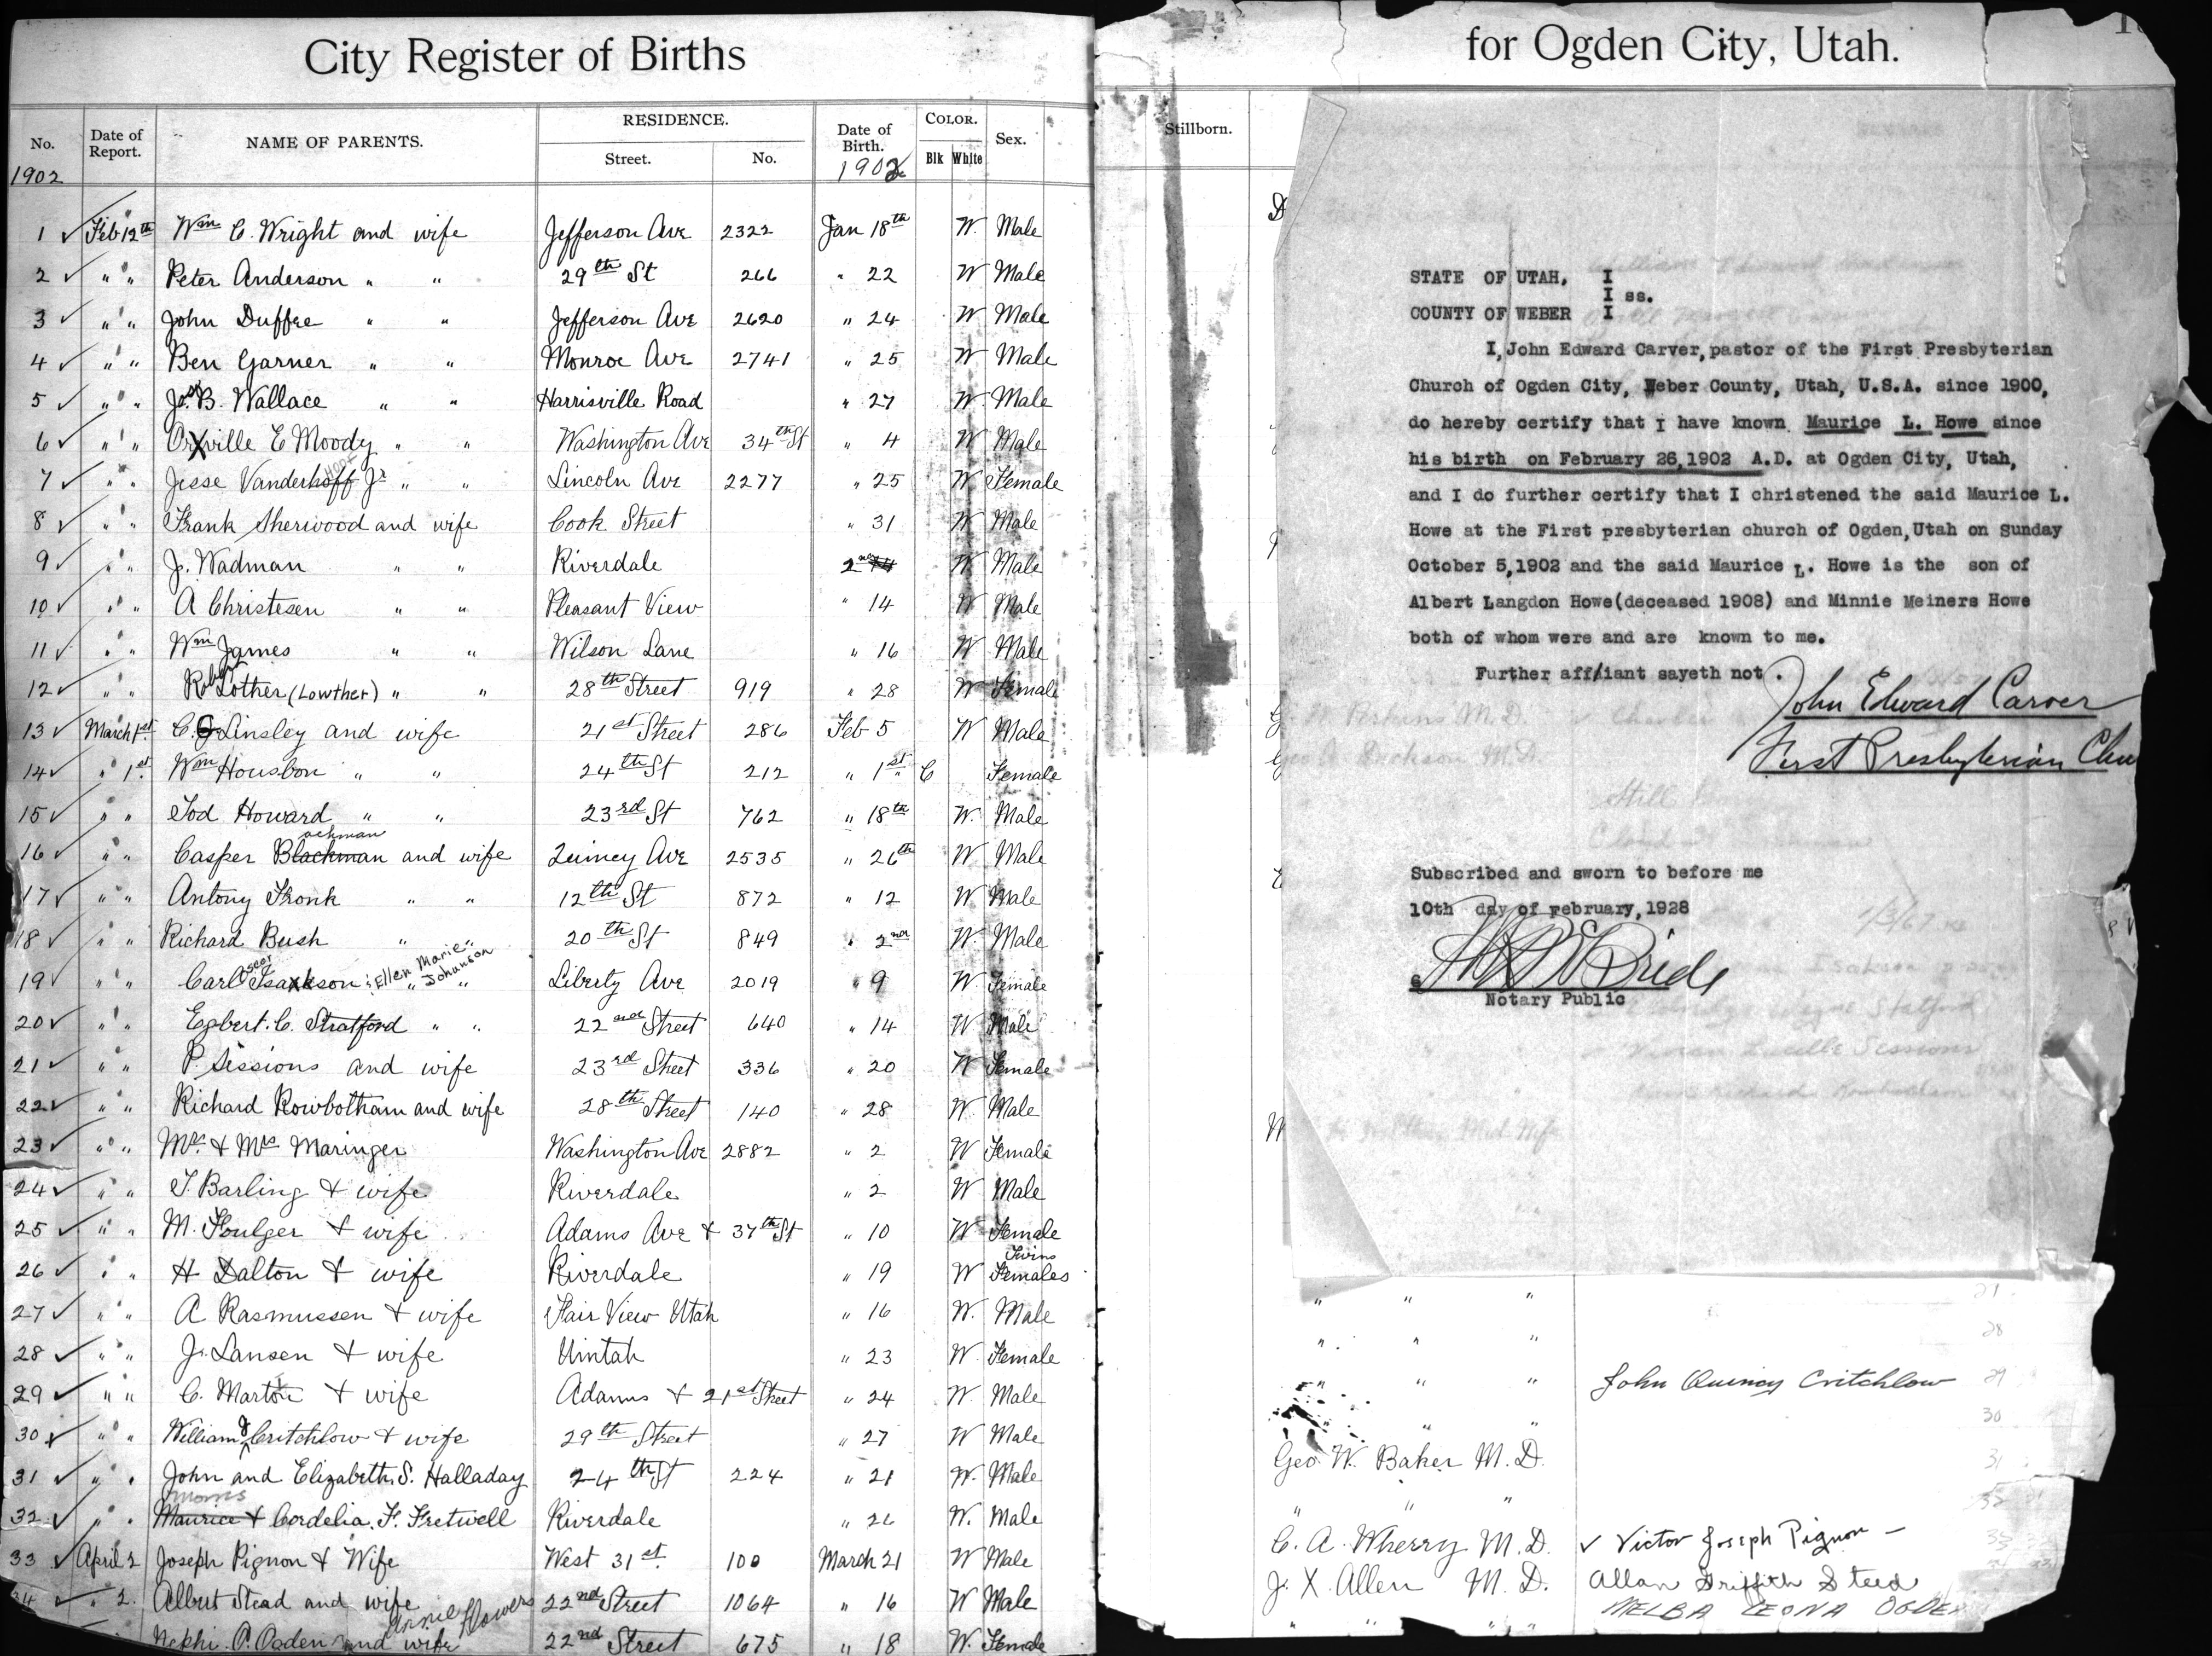 City Register of Births
No. Date of Report. NAME OF PARENTS. RESIDENCE. Street. No. Date of Birth. COLOR. Blk White Sex.
1902 1902
1 ✓ Feb 12th Wm C. Wright and wife Jefferson Ave 2322 Jan 18th W. Male
2 ✓ " " Peter Anderson " " 29th St 266 " 22 W Male
3 ✓ " " John Duffee " " Jefferson Ave 2620 " 24 W Male
4 ✓ " " Ben Garner " " Monroe Ave 2741 " 25 W Male
5 ✓ " " Jos. B. Wallace " " Harrisville Road " 27 W. Male
6 ✓ " " Orville E Moody " " Washington Ave 34th St " 4 W Male
7 ✓ " " Jesse Vanderhoff Jr " " Lincoln Ave 2277 " 25 W Female
8 ✓ " " Frank Sherwood and wife Cook Street " 31 W Male
9 ✓ " " J. Wadman " " Riverdale 2nd W Male
10 ✓ " " A Christesen " " Pleasant View " 14 W Male
11 ✓ " " Wm James " " Wilson Lane " 16 W Male
12 ✓ " " Robt Lother (Lowther) " " 28th Street 919 " 28 W Female
13 ✓ March 1st C. G Linsley and wife 21st Street 286 Feb 5 W Male
14 ✓ " 1st Wm Housbon " " 24th St 212 " 1st C Female
15 ✓ " " Tod Howard " " 23rd St 762 " 18th W. Male
achman
16 ✓ " " Casper Blackman and wife Quincy Ave 2535 " 26th W Male
17 ✓ " " Antony Fronk " " 12th St 872 " 12 W Male
18 ✓ " " Richard Bush " " 20th St 849 " 2nd W. Male
19 ✓ " " Carl Oscer Isakson : Ellen Marie Johanson " " Liberty Ave 2019 " 9 W. Female
20 ✓ " " Egbert. C. Stratford " " 22nd Street 640 " 14 W Male
21 ✓ " " P. Sessions and wife 23rd Street 336 " 20 W Female
22 ✓ " " Richard Rowbotham and wife 28th Street 140 " 28 W. Male
23 ✓ " " Mr. & Mrs Maringer Washington Ave 2882 " 2 W Female
24 ✓ " " T. Barling & wife Riverdale " 2 W Male
25 ✓ " " M. Foulger & wife Adams Ave & 37th St " 10 W Female
26 ✓ " " H Dalton & wife Riverdale " 19 W Twins Females
27 ✓ " " A Rasmussen & wife Fair View Utah " 16 W. Male
28 ✓ " " J. Lansen & wife Uintah " 23 W. Female
29 ✓ " " C. Martin & wife Adams & 21st Street " 24 W. Male
30 ✓ " " William J Critchlow & wife 29th Street " 27 W Male
31 ✓ " " John and Elizabeth. S. Halladay 24th St 224 " 21 W. Male
Morris
32 ✓ " " Maurice & Cordelia. F. Fretwell Riverdale " 26 W. Male
33 ✓ April 2 Joseph Pignon & Wife West 31st. 100 March 21 W Male
34 ✓ " 2. Albert Stead and wife 22nd Street 1064 " 16 W Male
Nephi. A. Ogden and wife Annie Flowers 22nd Street 675 " 18 W. Female
for Ogden City, Utah.
Stillborn.
STATE OF UTAH, I
I ss.
COUNTY OF WEBER I
I, John Edward Carver, pastor of the First Presbyterian
Church of Ogden City, Weber County, Utah, U.S.A. since 1900,
do hereby certify that I have known Maurice L. Howe since
his birth on February 26,1902 A.D. at Ogden City, Utah,
and I do further certify that I christened the said Maurice L.
Howe at the First presbyterian church of Ogden,Utah on Sunday
October 5,1902 and the said Maurice L. Howe is the son of
Albert Langdon Howe(deceased 1908) and Minnie Meiners Howe
both of whom were and are known to me.
Further aff/iant sayeth not.
John Edward Carver
First Presbyterian Chu
Subscribed and sworn to before me
10th day of february,1928
Notary Public
" " " 21
" " " 28
" " " John Quincy Critchlow 29
" " 30
Geo W. Baker M.D. 31
" " "
C. A. Wherry M.D. ✓ Victor Joseph Pignon - 33
J. X. Allen M.D. Allan Griffith Steed
" " " MELBA LEONA OGDEN